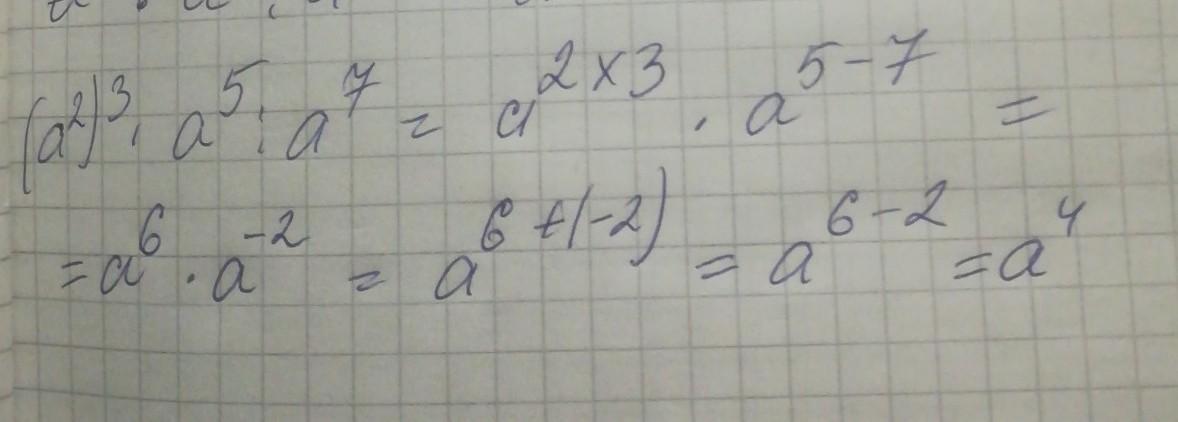 (a²)³ · a⁵ : a⁷ = a^{2×3} · a^{5-7} =
= a⁶ · a⁻² = a^{6+(-2)} = a^{6-2} = a⁴